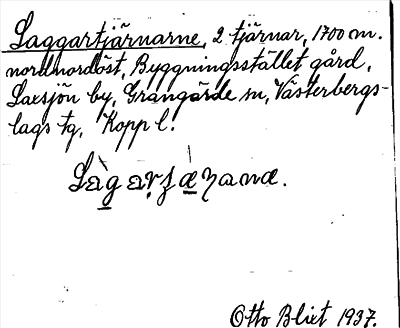 Laggartjärnarne, 2 tjärnar, 1700 m.
nordnordöst, Byggningsstället gård,
Laxsjön by, Grangärde sn, Västerbergs-
lags tg, Kopp l.
Otto Blixt 1937.